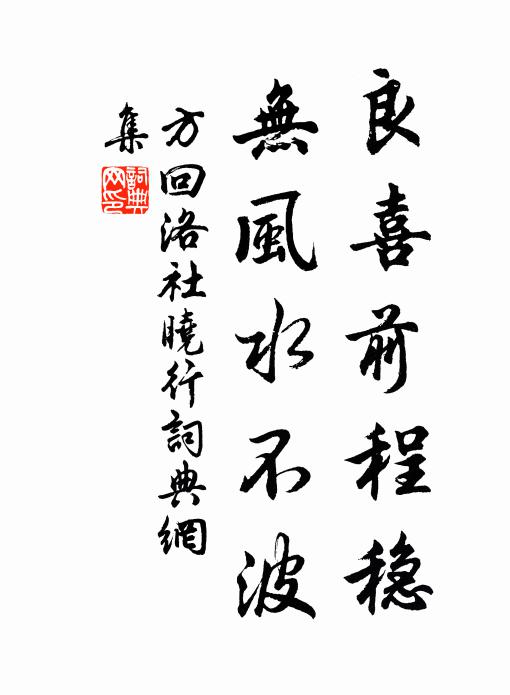 良喜前程穩
無風水不波
方回洛社曉行詞典網
集
詞典
网印